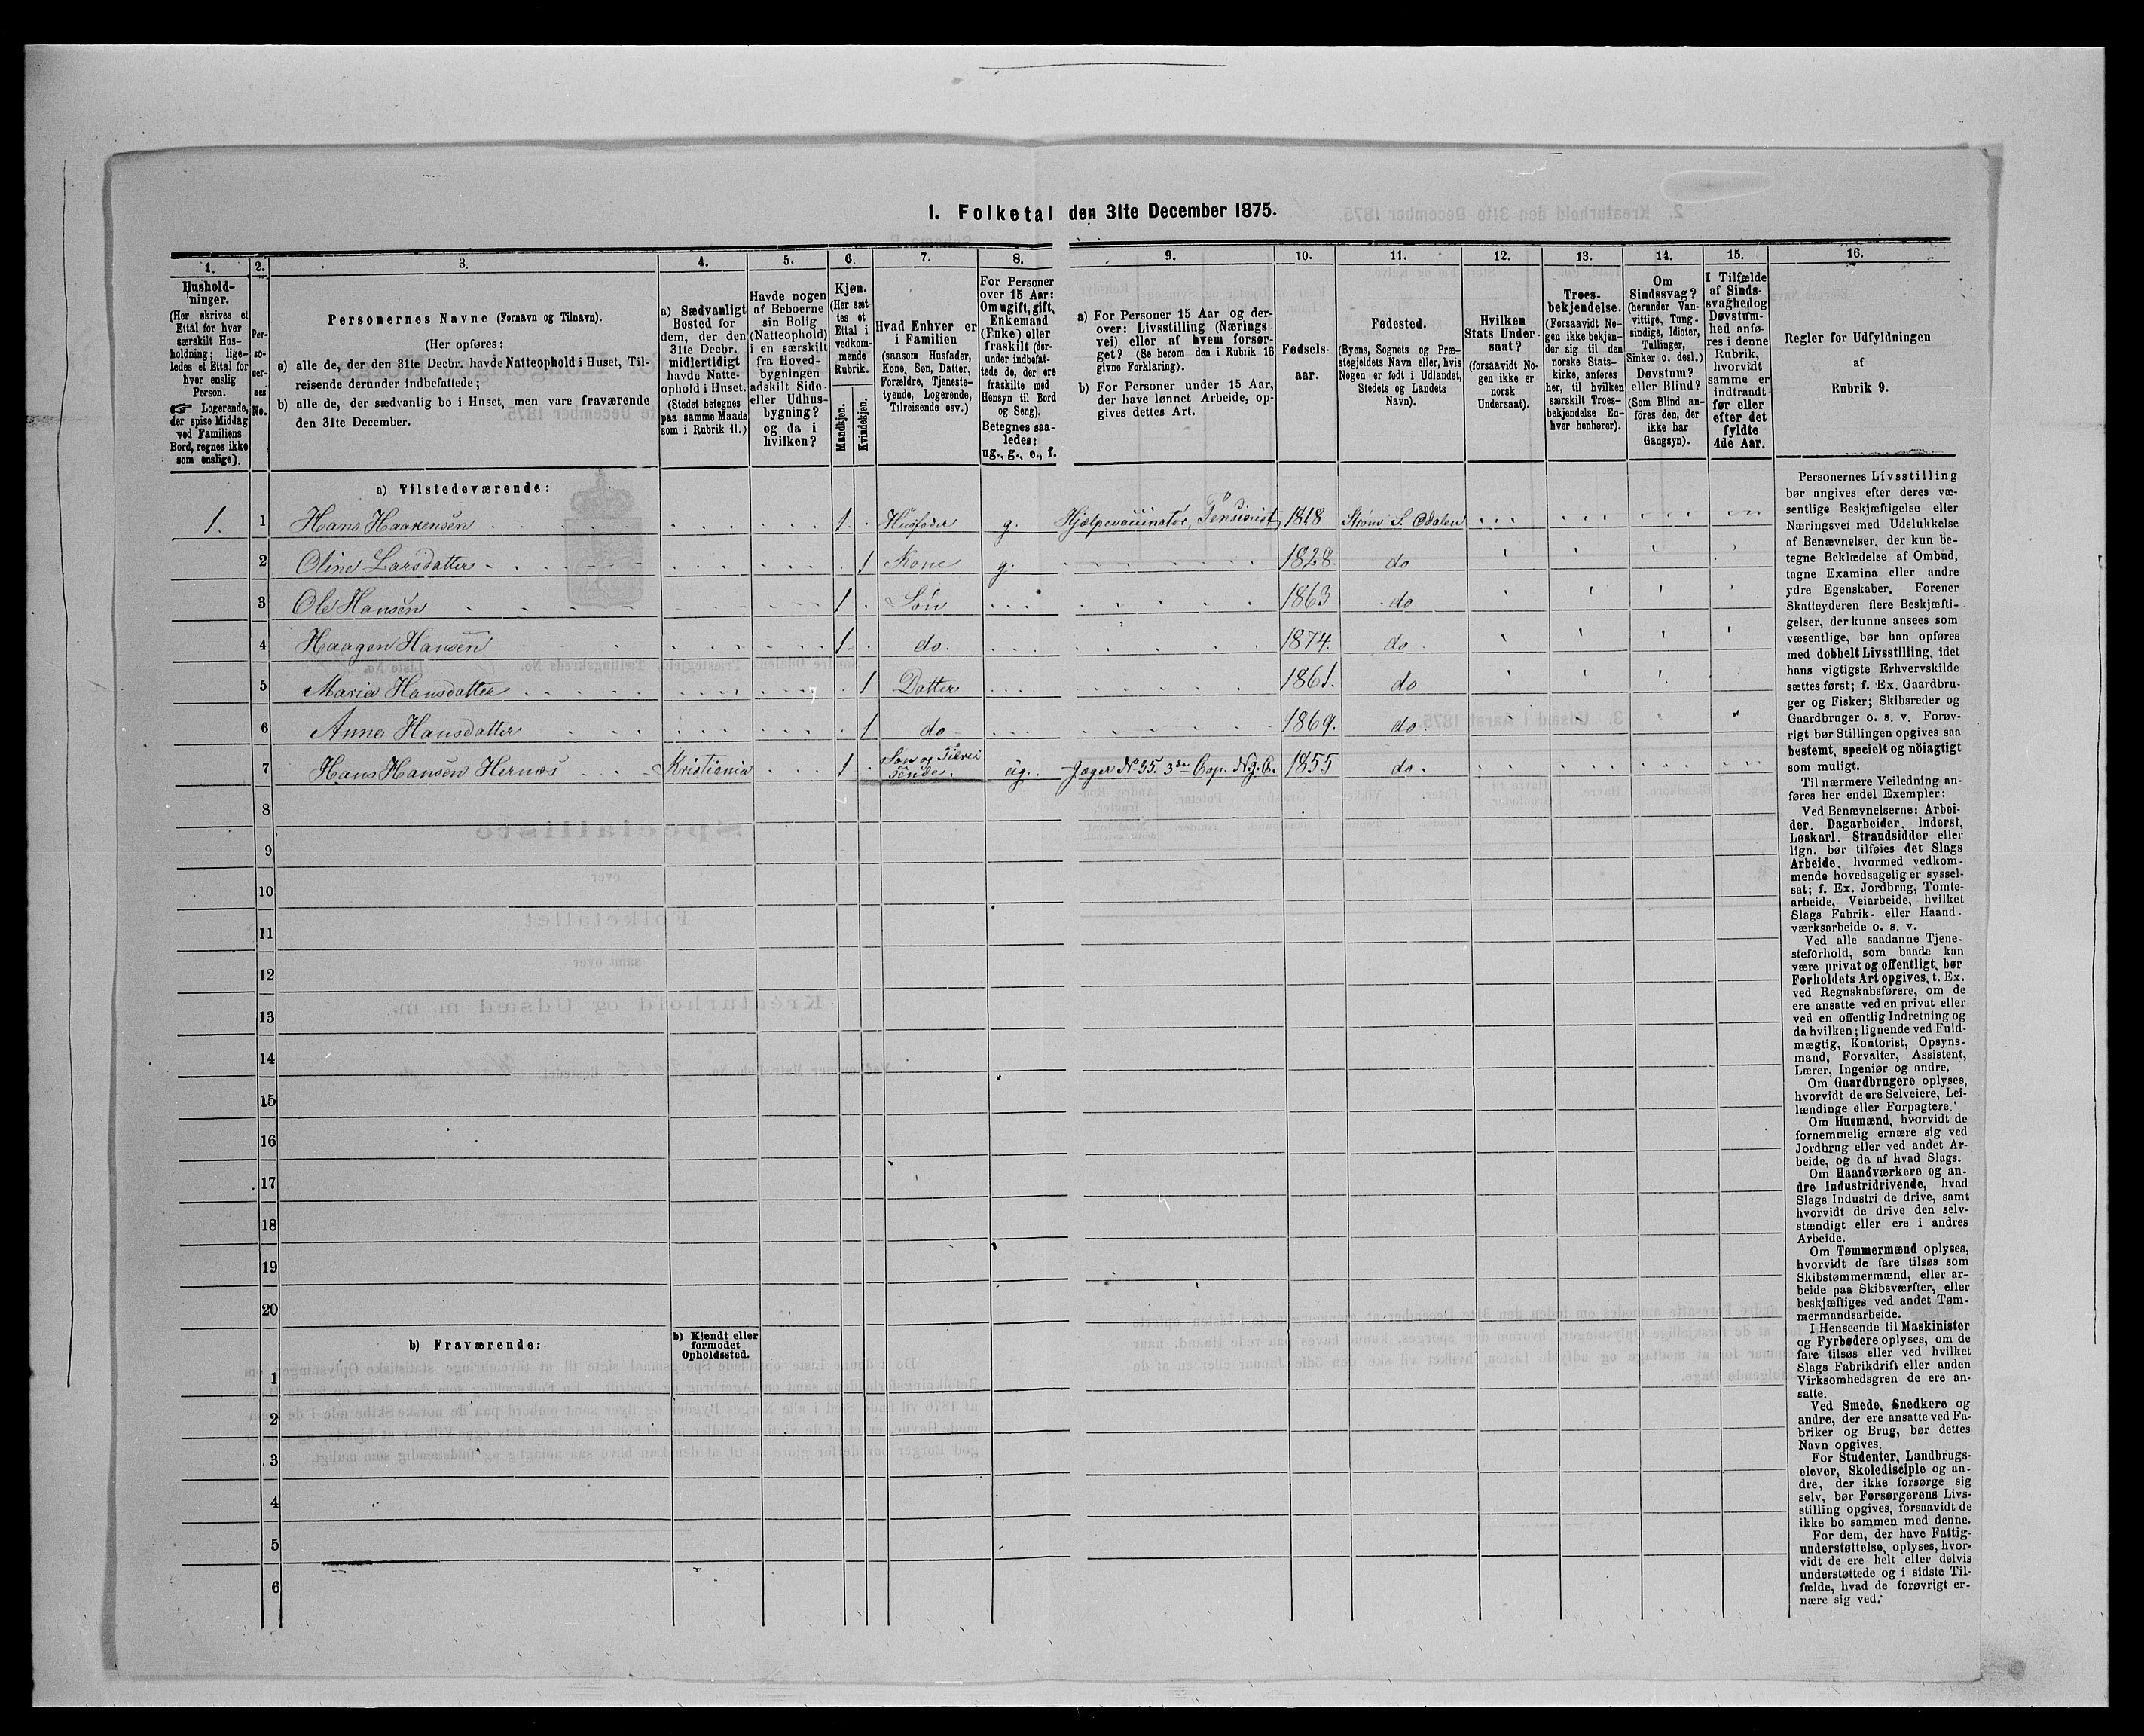 1. Folketal den 31te December 1875.
1. 2. 3. 4. 5. 6. 7. 8. 9. 10. 11. 12. 13. 14. 15. 16.
Hushold-
ninger.
(Her skrives et
Ettal for hver
særskilt Hus-
holdning; lige-
ledes et Ettal for
hver enslig
Person.
☞ Logerende,
der spise Middag
ved Familiens
Bord, regnes ikke
som enslige).
Per-
so-
ner-
nes
No.
Personernes Navne (Fornavn og Tilnavn).
(Her opføres:
a) alle de, der den 31te Decbr. havde Natteophold i Huset, Til-
reisende derunder indbefattede;
b) alle de, der sædvanlig bo i Huset, men vare fraværende
den 31te December.
a) Sædvanligt
Bosted for
dem, der den
31te Decbr.
midlertidigt
havde Natte-
ophold i Huset.
(Stedet betegnes
paa samme Maade
som i Rubrik 11.)
Havde nogen
af Beboerne
sin Bolig
(Natteophold)
i en særskilt
fra Hoved-
bygningen
adskilt Side-
eller Udhus-
bygning?
og da i
hvilken?
Kjøn.
(Her sæt-
tes et
Ettal i
vedkom-
mende
Rubrik.
Mandkjøn.
Kvindekjøn.
Hvad Enhver er
i Familien
(saasom Husfader,
Kone, Søn, Datter,
Forældre, Tjeneste-
tyende, Logerende,
Tilreisende osv.)
For Personer
over 15 Aar:
Om ugift, gift,
Enkemand
(Enke) eller
fraskilt (der-
under indbefat-
tede de, der ere
fraskilte med
Hensyn til Bord
og Seng).
Betegnes saa-
ledes:
ug., g., e., f.
a) For Personer 15 Aar og der-
over: Livsstilling (Nærings
vei) eller af hvem forsør-
get? (Se herom den i Rubrik 16
givne Forklaring).
b) For Personer under 15 Aar,
der have lønnet Arbeide, op-
gives dettes Art.
Fødsels-
aar.
Fødested.
(Byens, Sognets og Præ-
stegjeldets Navn eller, hvis
Nogen er født i Udlandet,
Stedets og Landets
Navn).
Hvilken
Stats Under-
saat?
(forsaavidt No-
gen ikke er
norsk
Undersaat).
Troes-
bekjendelse.
(Forsaavidt No-
gen ikke bekjen-
der sig til den
norske Stats-
kirke, anføres
her, til hvilken
særskilt Troes-
bekjendelse En-
hver henhører).
Om
Sindssvag?
(herunder Van-
vittige, Tung-
sindige, Idioter,
Tullinger,
Sinker o. desl.)
Døvstum?
eller Blind?
(Som Blind an-
føres den, der
ikke har
Gangsyn).
I Tilfælde
af Sinds-
svaghed og
Døvstum-
hed anfø-
res i denne
Rubrik,
hvorvidt
samme er
indtraadt
før eller
efter det
fyldte
4de Aar.
Regler for Udfyldningen
af
Rubrik 9.
a) Tilstedeværende:
1. 1 Hans Haakensen 1 Husfader g. Hjælpevaccinatør, Pensionist 1818 Strøm S. Odalen
2 Oline Larsdatter 1 Kone g. 1828. do
3 Ole Hansen 1 Søn 1863 do
4 Haagen Hansen 1 do. 1874. do
5 Maria Hansdatter 1 Datter 1861. do
6 Anne Hansdatter 1 do 1869. do
7 Hans Hansen Hernæs Kristiania 1 Søn og Tilrei
sende. ug. Jæger No 35. 3die Cop. N.J.C. 1855 do.
8
9
10
11
12
13
14
15
16
17
18
19
20
b) Fraværende:
b) Kjendt eller
formodet
Opholdssted.
1
2
3
4
5
6
Personernes Livsstilling
bør angives efter deres væ-
sentlige Beskjæftigelse eller
Næringsvei med Udelukkelse
af Benævnelser, der kun be-
tegne Beklædelse af Ombud,
tagne Examina eller andre
ydre Egenskaber. Forener
Skatteyderen flere Beskjæfti-
gelser, der kunne ansees som
væsentlige, bør han opføres
med dobbelt Livsstilling, idet
hans vigtigste Erhvervskilde
sættes først; f. Ex. Gaardbru-
ger og Fisker; Skibsreder og
Gaardbruger o. s. v. Forøv-
rigt bør Stillingen opgives saa
bestemt, specielt og nöiagtigt
som muligt.
Til nærmere Veiledning an-
føres her endel Exempler:
Ved Benævnelserne: Arbei-
der, Dagarbeider, Inderst,
Løskarl, Strandsidder eller
lign. bør tilføies det Slags
Arbeide, hvormed vedkom-
mende hovedsagelig er syssel-
sat; f. Ex. Jordbrug, Tomte-
arbeide, Veiarbeide, hvilket
Slags Fabrik- eller Haand-
værksarbeide o. s. v.
Ved alle saadanne Tjene-
steforhold, som baade kan
være privat og offentligt, bør
Forholdets Art opgives, t. Ex.
ved Regnskabsførere, om de
ere ansatte ved en privat eller
ved en offentlig Indretning og
da hvilken; lignende ved Fuld-
mægtig, Kontorist, Opsyns-
mand, Forvalter, Assistent,
Lærer, Ingeniør og andre.
Om Gaardbrugere oplyses,
hvorvidt de ere Selveiere, Lei-
lændinge eller Forpagtere.
Om Husmænd, hvorvidt de
fornemmelig ernære sig ved
Jordbrug eller ved andet Ar-
beide, og da af hvad Slags.
Om Haandværkere og an-
dre Industridrivende, hvad
Slags Industri de drive, samt
hvorvidt de drive den selv-
stændigt eller ere i andres
Arbeide.
Om Tømmermænd oplyses,
hvorvidt de fare tilsøs som
Skibstømmermænd, eller ar-
beide paa Skibsværfter, eller
beskjæftiges ved andet Tøm-
mermandsarbeide.
I Henseende til Maskinister
og Fyrbødere oplyses, om de
fare tilsøs eller ved hvilket
Slags Fabrikdrift eller anden
Virksomhedsgren de ere an-
satte.
Ved Smede, Snedkere og
andre, der ere ansatte ved Fa-
briker og Brug, bør dettes
Navn opgives.
For Studenter, Landbrugs-
elever, Skoledisciple og an-
dre, der ikke forsørge sig
selv, bør Forsørgerens Livs-
stilling opgives, forsaavidt de
ikke bo sammen med denne.
For dem, der have Fattig-
understøttelse, oplyses, hvor-
vidt de ere helt eller delvis
understøttede og i sidste Til-
fælde, hvad de forøvrigt er-
nære sig ved.